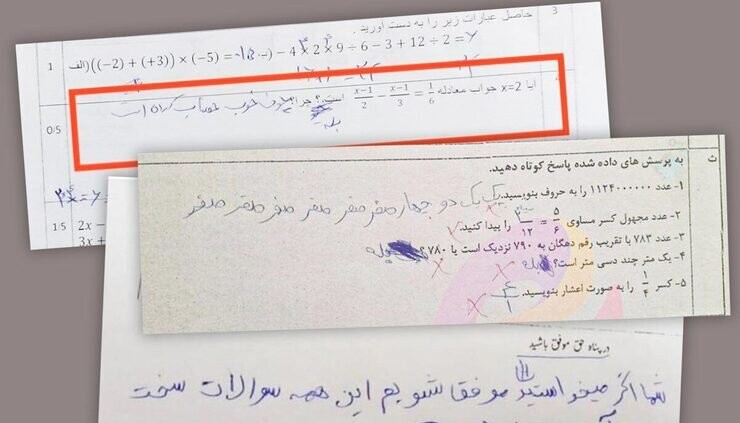 حاصل عبارات زیر را به دست آورید.
3
1
الف) ((-2) + (+3)) × (-5) =
- 4 × 2 × 9 ÷ 6 - 3 + 12 ÷ 2 =
آیا x=2 جواب معادله x-1/2 - x-1/3 = 1/6 است؟ چرا؟ چون خوب حساب کرده است
بله
0/5
1/5
2x -
3x +
ث
به پرسش های داده شده پاسخ کوتاه دهید.
۱- عدد ۱۱۲۴۰۰۰۰۰۰ را به حروف بنویسید. یک یک دو چهار صفر صفر صفر صفر صفر صفر
۲- عدد مجهول کسر مساوی ۵/۶ = /۱۲ را پیدا کنید.
۳- عدد ۷۸۳ با تقریب رقم دهگان به ۷۹۰ نزدیک است یا ۷۸۰؟ بله
۴- یک متر چند دسی متر است؟ بله
۵- کسر ۱/۴ را به صورت اعشار بنویسید. ۴/۱
در پناه حق موفق باشید
شما اگر میخواستید موفق شویم این همه سوالات سخت